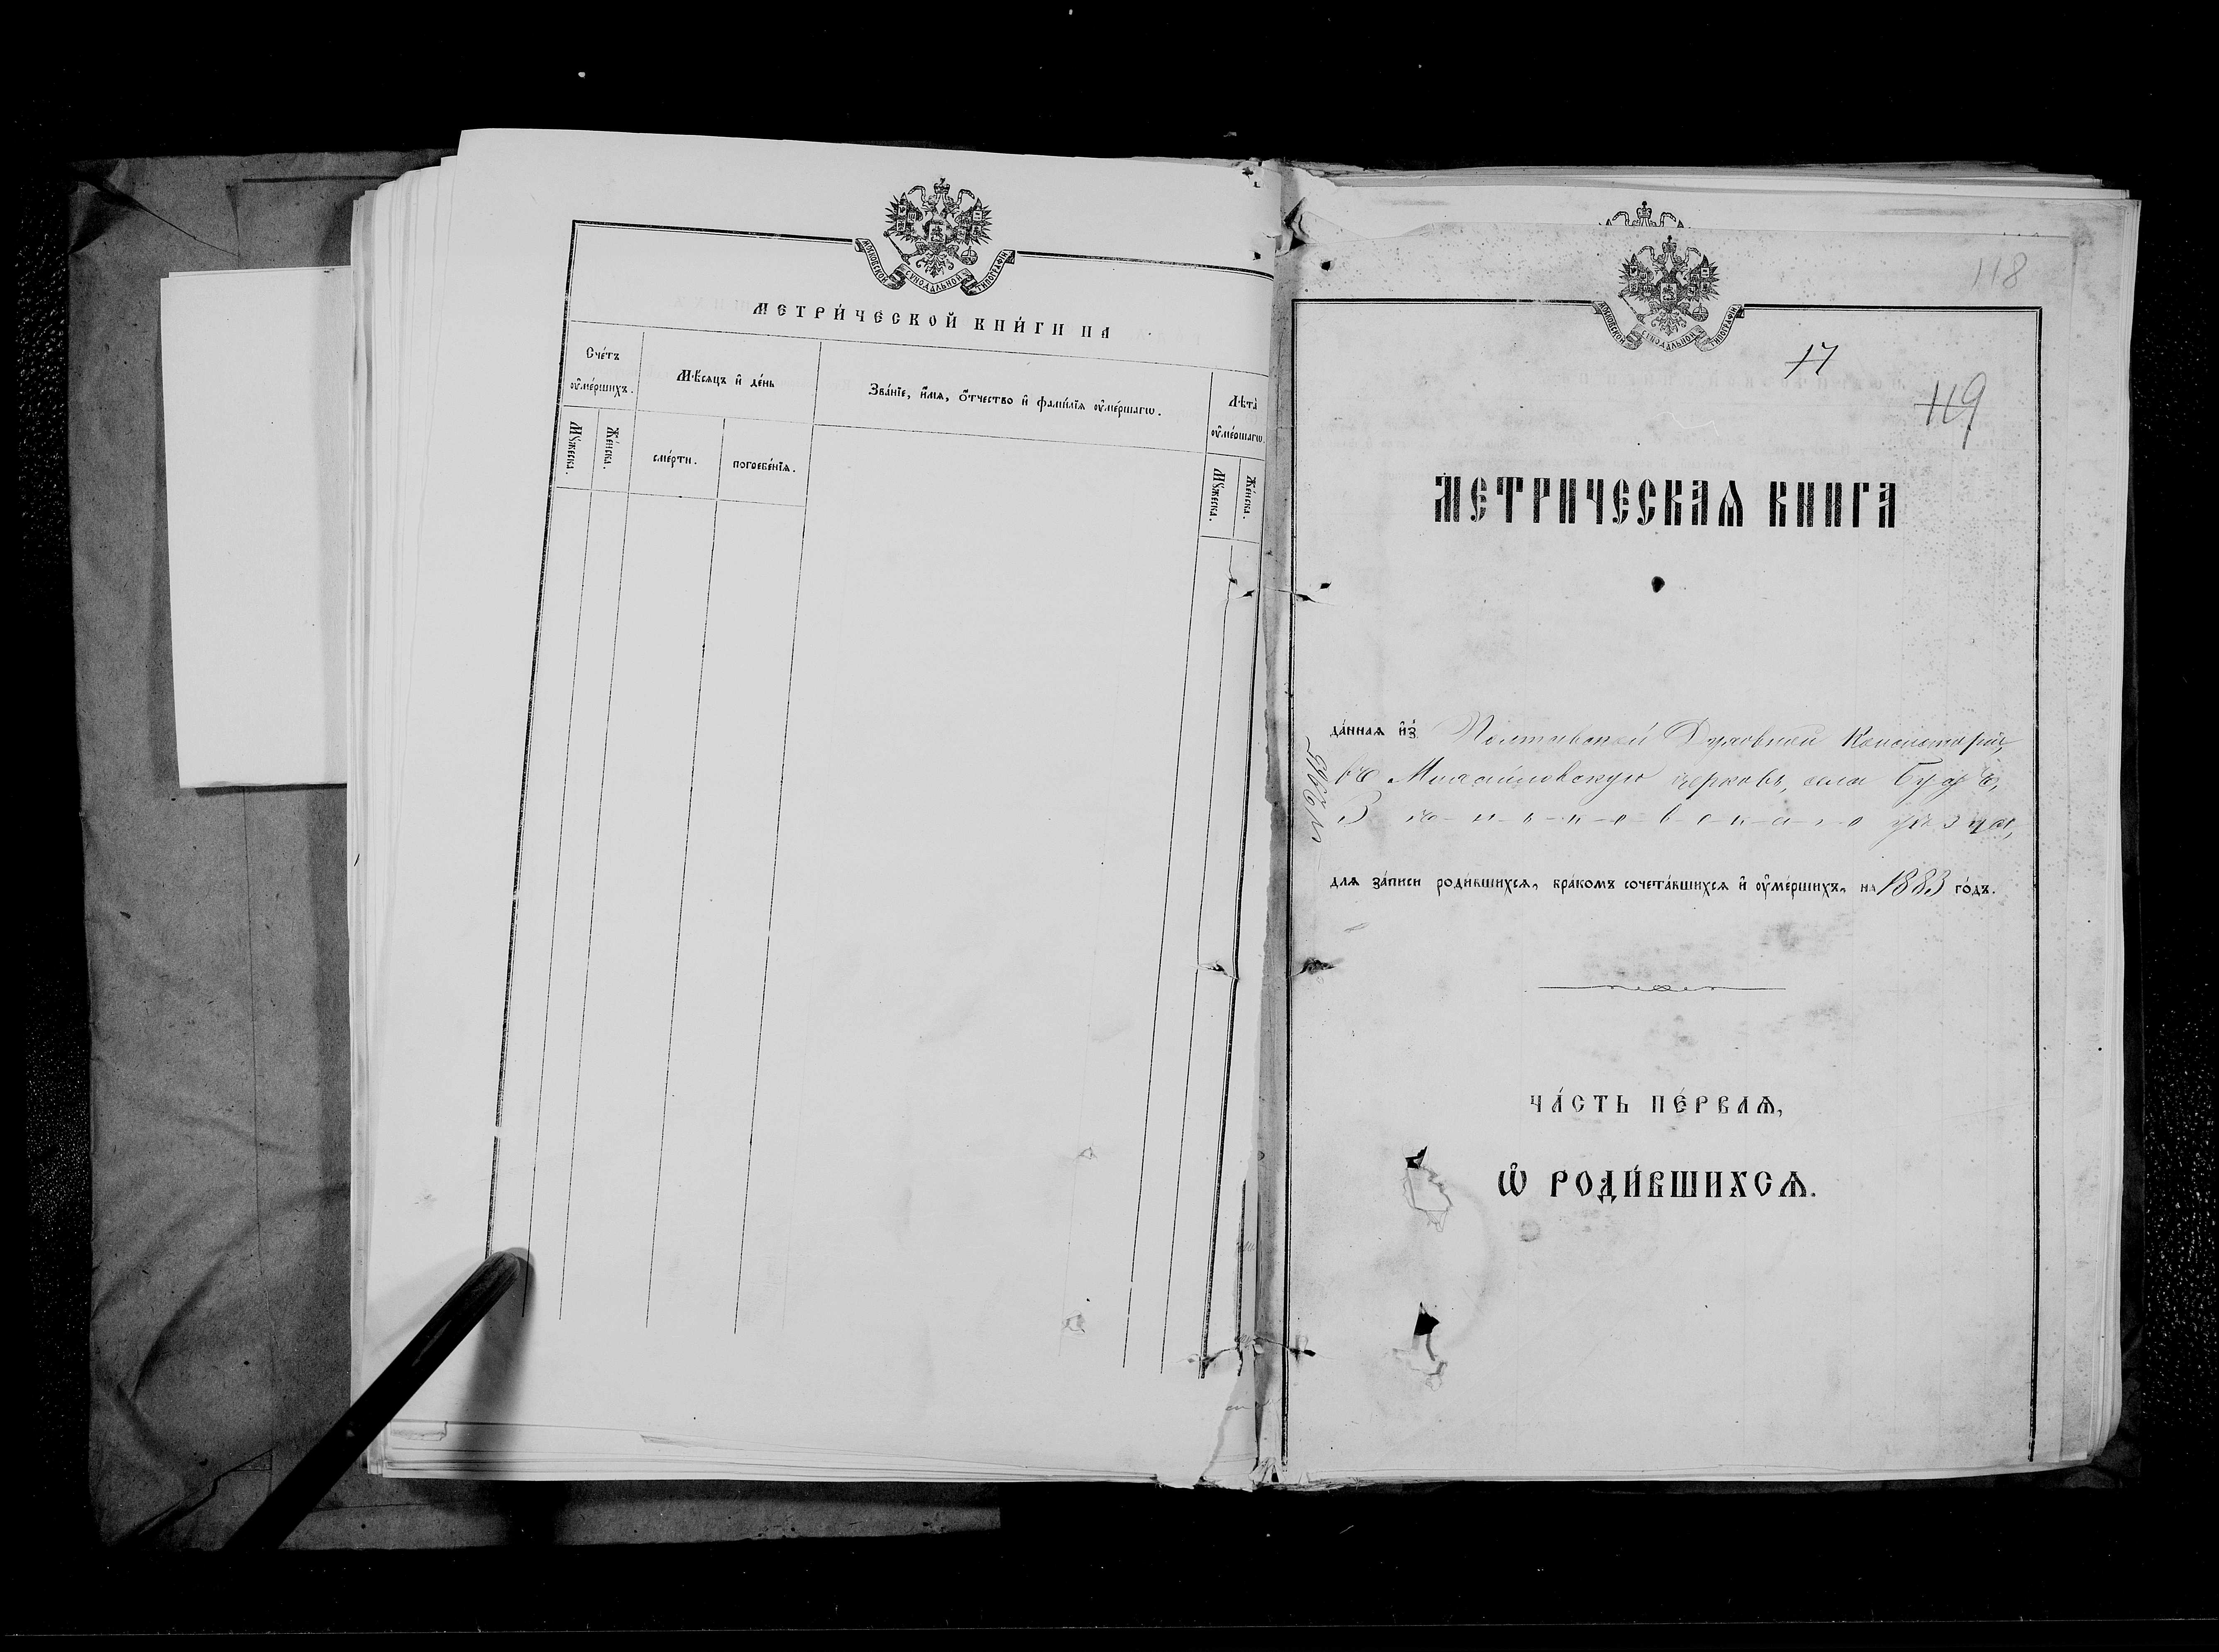 МОСКОВСКОЙ СѴНОДАЛЬНОЙ ТИПОГРАФІИ
МЕТРИ́ЧЕСКОЙ КНИ́ГИ НА
Сче́тъ
ᲂу҆ме́ршихъ.
Мѣ́сяцъ и҆ де́нь
Зва́нїе, и҆́мѧ, ѻ҆́тчество и҆ фами́лїѧ ᲂу҆ме́ршагѡ.
Лѣ́та
ᲂу҆ме́ршагѡ.
Мꙋ́жеска.
Же́нска.
сме́рти.
погребе́нїѧ.
Мꙋ́жеска.
Же́нска.
118
МОСКОВСКОЙ СѴНОДАЛЬНОЙ ТИПОГРАФІИ
17
119
МЕТРИЧЕСКАѦ КНИГА
да́ннаѧ и҆з̾ Полтавской Духовной Консисторіи,
въ Михайловскую церковь, села
Зѣньковскаго уѣзда,
для за́писи роди́вшихсѧ, бра́комъ сочета́вшихсѧ и҆ ᲂу҆ме́ршихъ, на 1883 го́дъ.
ЧА́СТЬ ПЕ́РВАѦ,
Ѡ҆ РОДИ́ВШИХСѦ.